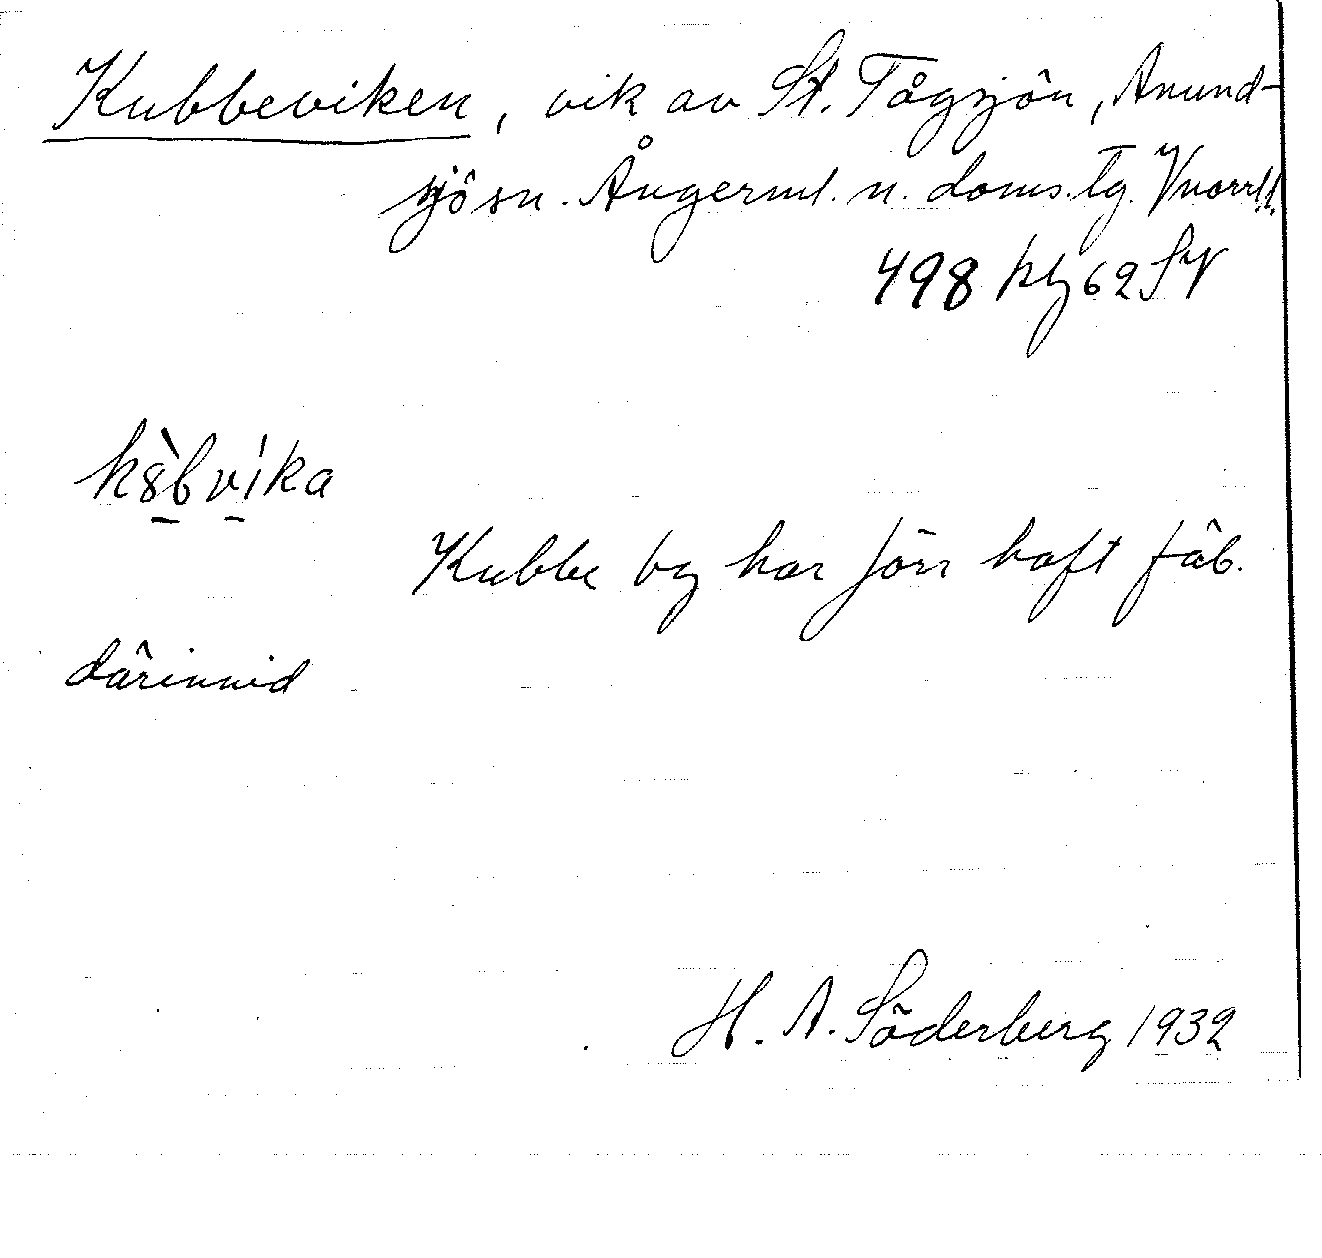 Kubbeviken, vik av St. Tågsjön, Anund-
sjö sn. Ångerml. n. doms. tg. Vnorrl l.
498 kbg 62 SV
kȣ̀bvíka
Kubbe by har förr haft fäb.
därinvid
H. A. Söderberg 1932